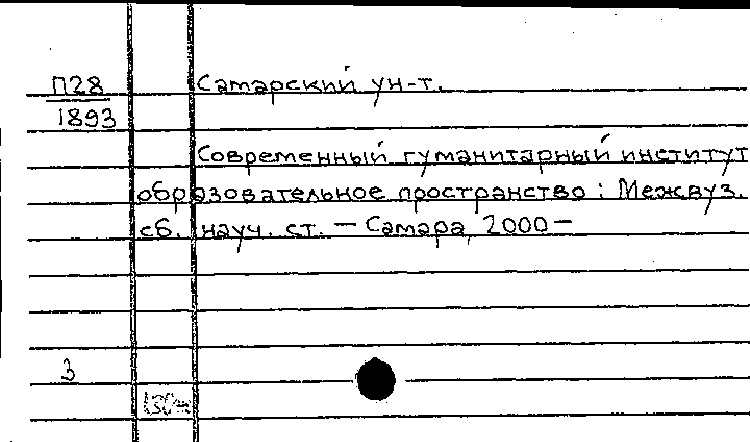 П28 Самарский ун-т.
1893
Современный гуманитарный институт
образовательное пространство: Межвуз.
сб. науч. ст. — Самара, 2000 —
3